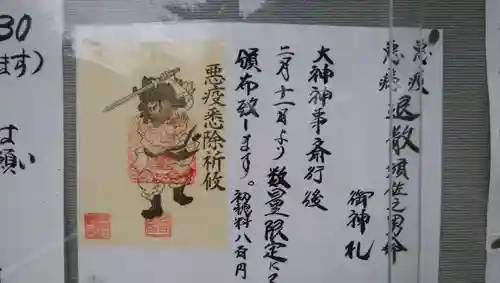 悪疫
悪病
退散
須佐之男命
御神札
大神神事斎行後
二月十一日より数量限定にて
頒布致します。
初穂料八百円
悪疫悉除祈攸
30
ます)
は
願い